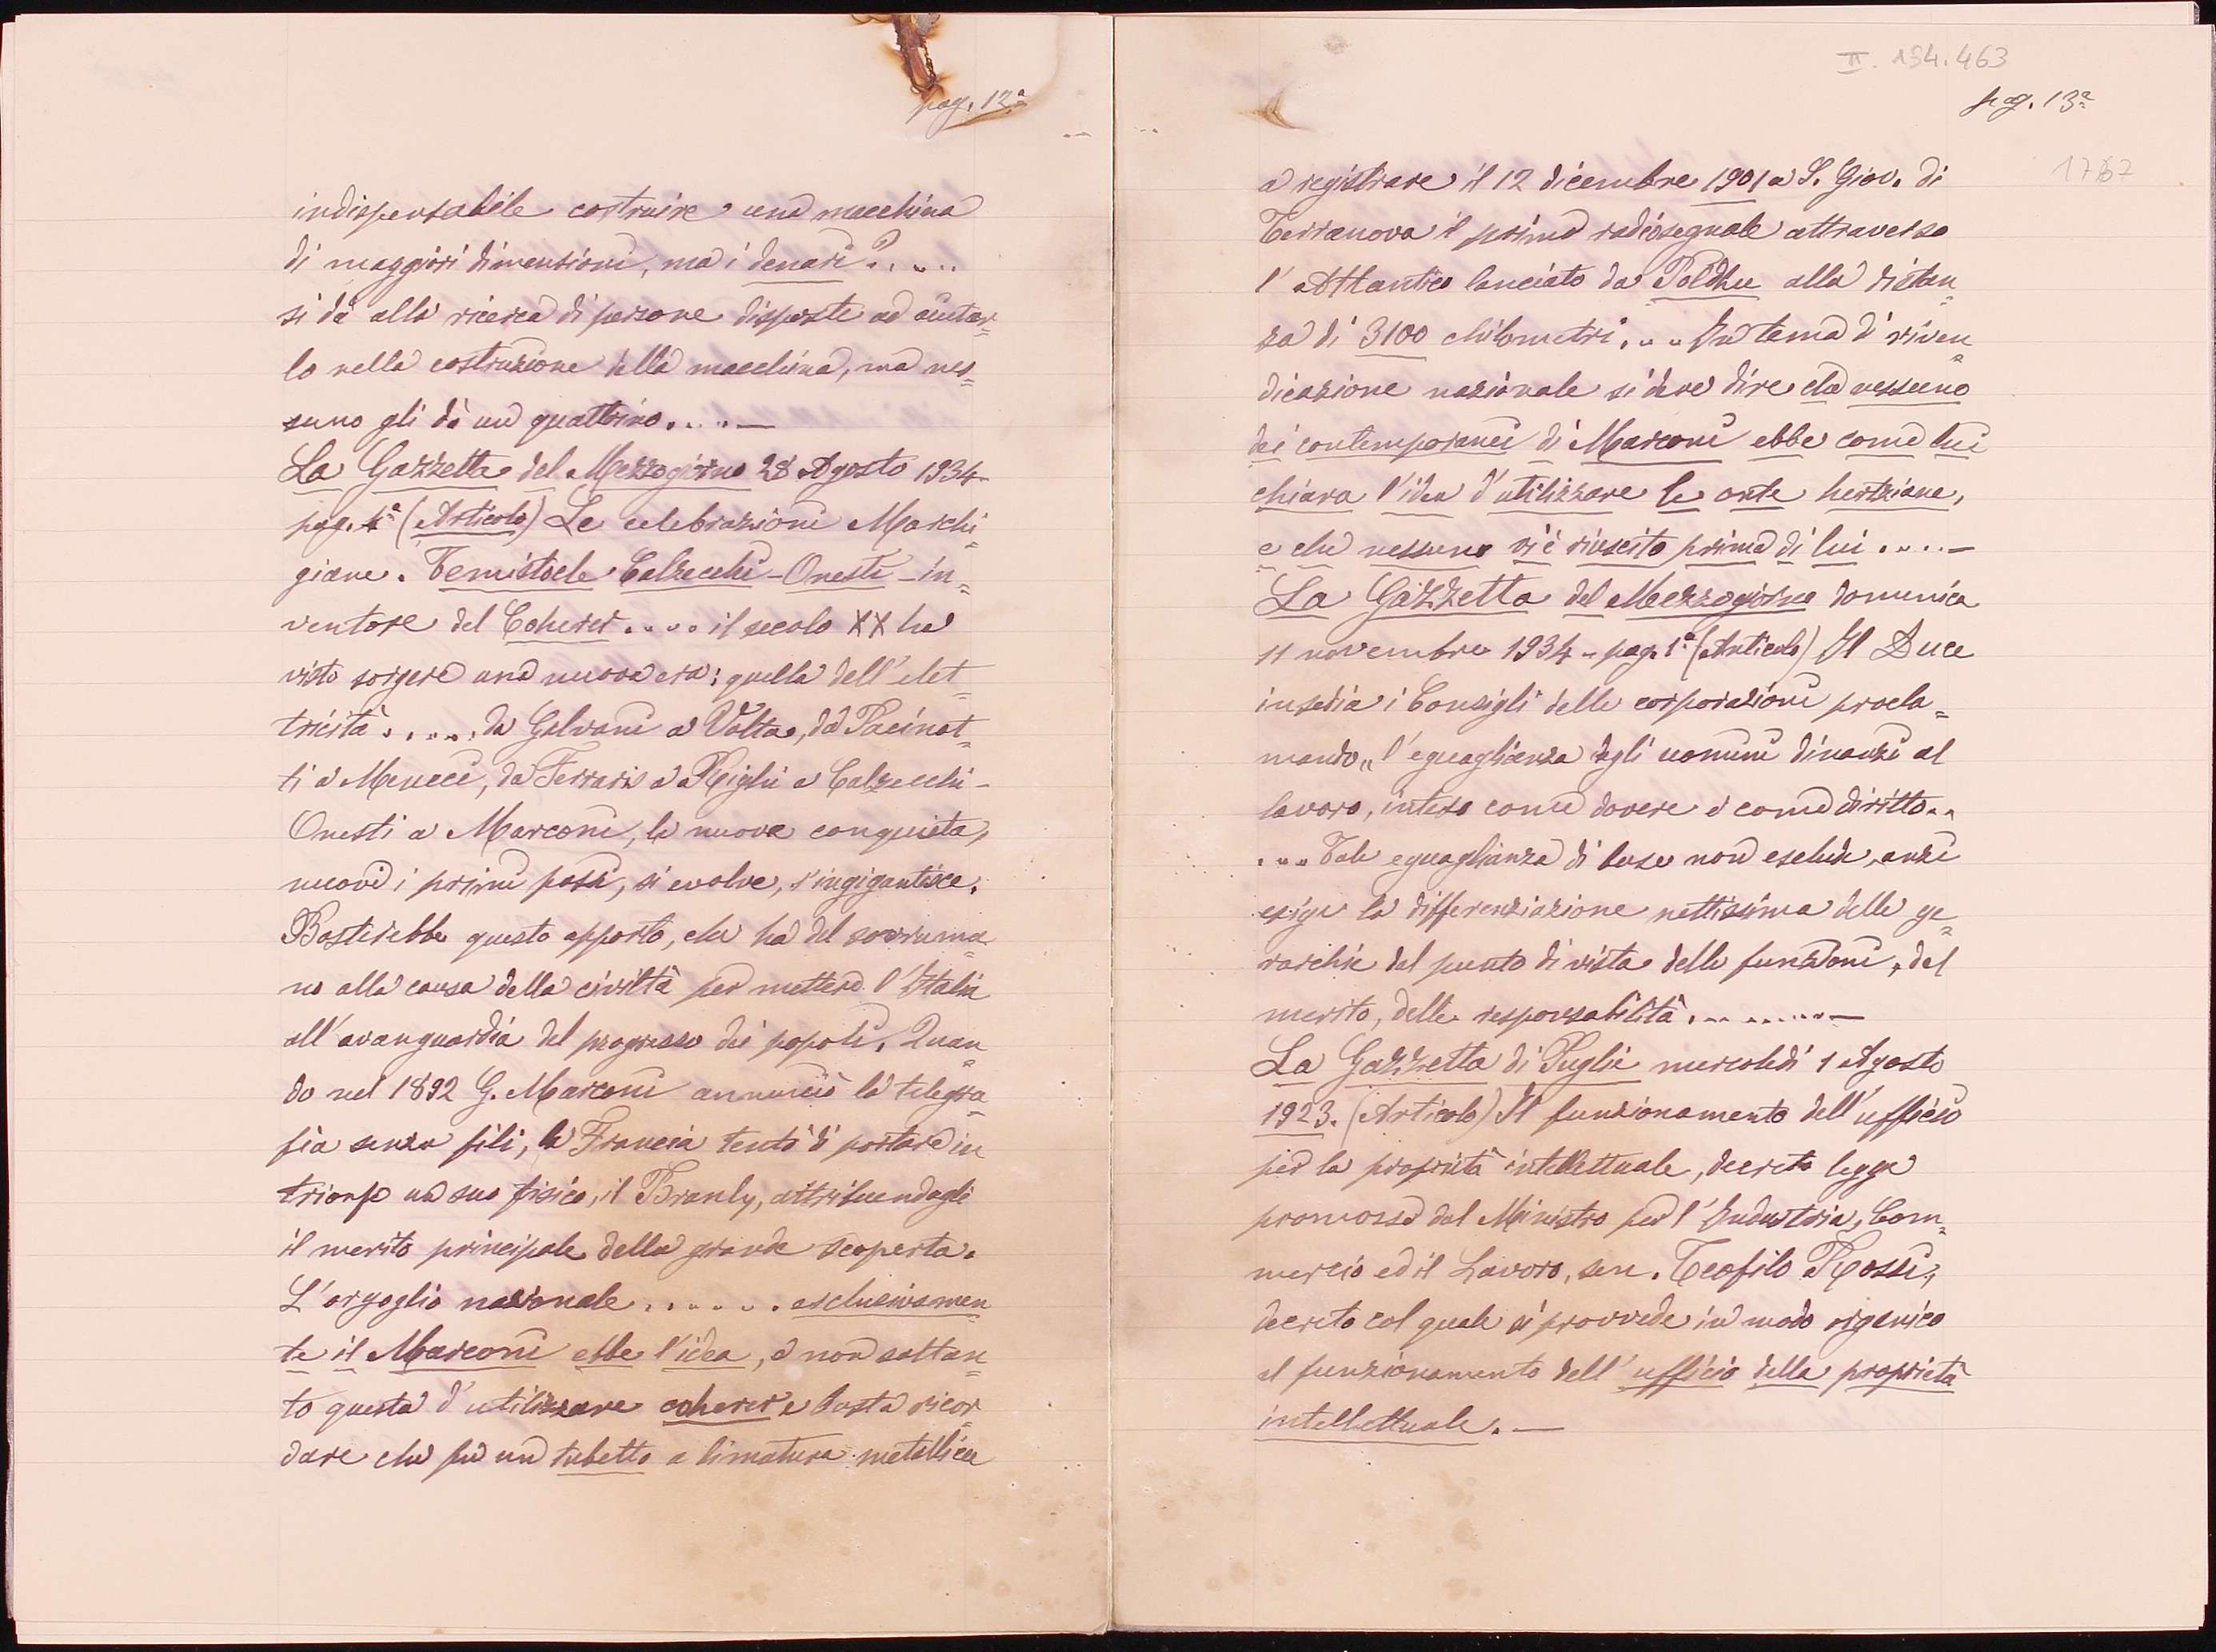 pag. 12ª
indispensabile costruire una macchina
di maggiori dimensioni, ma i denari?.....
si dà alla ricerca di persone disposte ad aiutar=
lo nella costruzione della macchina, ma nes=
suno gli dà un quattrino.....—
La Gazzetta del Mezzogiorno 28 Agosto 1934-
pag. 4ª (Articolo) Le celebrazioni Marchi=
giane. Temistocle Calzecchi-Onesti-in=
ventore del Coherer..... il secolo XX ha
visto sorgere una nuova era: quella dell'elet=
tricità..... da Galvani a Volta, da Pacinot=
ti a Meucci, da Ferraris a Righi a Calzecchi-
Onesti a Marconi, la nuova conquista,
muove i primi passi, si evolve, s'ingigantisce.
Basterebbe questo apporto, che ha del sovruma=
no alla causa della civiltà per mettere l'Italia
all'avanguardia del progresso dei popoli. Quan=
do nel 1892 G. Marconi annunciò la telegra=
fia senza fili, la Francia tentò di portare in
trionfo un suo fisico, il Branly, attribuendogli
il merito principale della grande scoperta.
L'orgoglio nazionale...... esclusivamen=
te il Marconi ebbe l'idea, e non soltan=
to questa d'utilizzare coherer e basta ricor=
dare che fu un tubetto a limatura metallica
II. 194.463
pag. 13ª
1767
a registrare il 12 dicembre 1901 a S. Giov. di
Terranova il primo radiosegnale attraverso
l'Atlantico lanciato da Poldhu alla distan=
za di 3100 chilometri.... In tema di riven=
dicazione nazionale si deve dire che nessuno
dei contemporanei di Marconi ebbe come lui
chiara l'idea d'utilizzare le onde hertziane,
e che nessuno vi è riuscito prima di lui.....—
La Gazzetta del Mezzogiorno domenica
11 novembre 1934 - pag. 1ª (Articolo) Il Duce
insedia i Consigli delle corporazioni procla=
mando „l'eguaglianza degli uomini dinanzi al
lavoro, inteso come dovere e come diritto..
....Tale eguaglianza di base non esclude, anzi
esige la differenziazione nettissima delle ge=
rarchie dal punto di vista delle funzioni, del
merito, delle responsabilità.........—
La Gazzetta di Puglia mercoledì 1 Agosto
1923. (Articolo) Il funzionamento dell'ufficio
per la proprietà intellettuale, decreto legge
promosso dal Ministro per l'Industria, Com=
mercio ed il Lavoro, sen. Teofilo Rossi,
decreto col quale si provvede in modo organico
al funzionamento dell'ufficio della proprietà
intellettuale.—